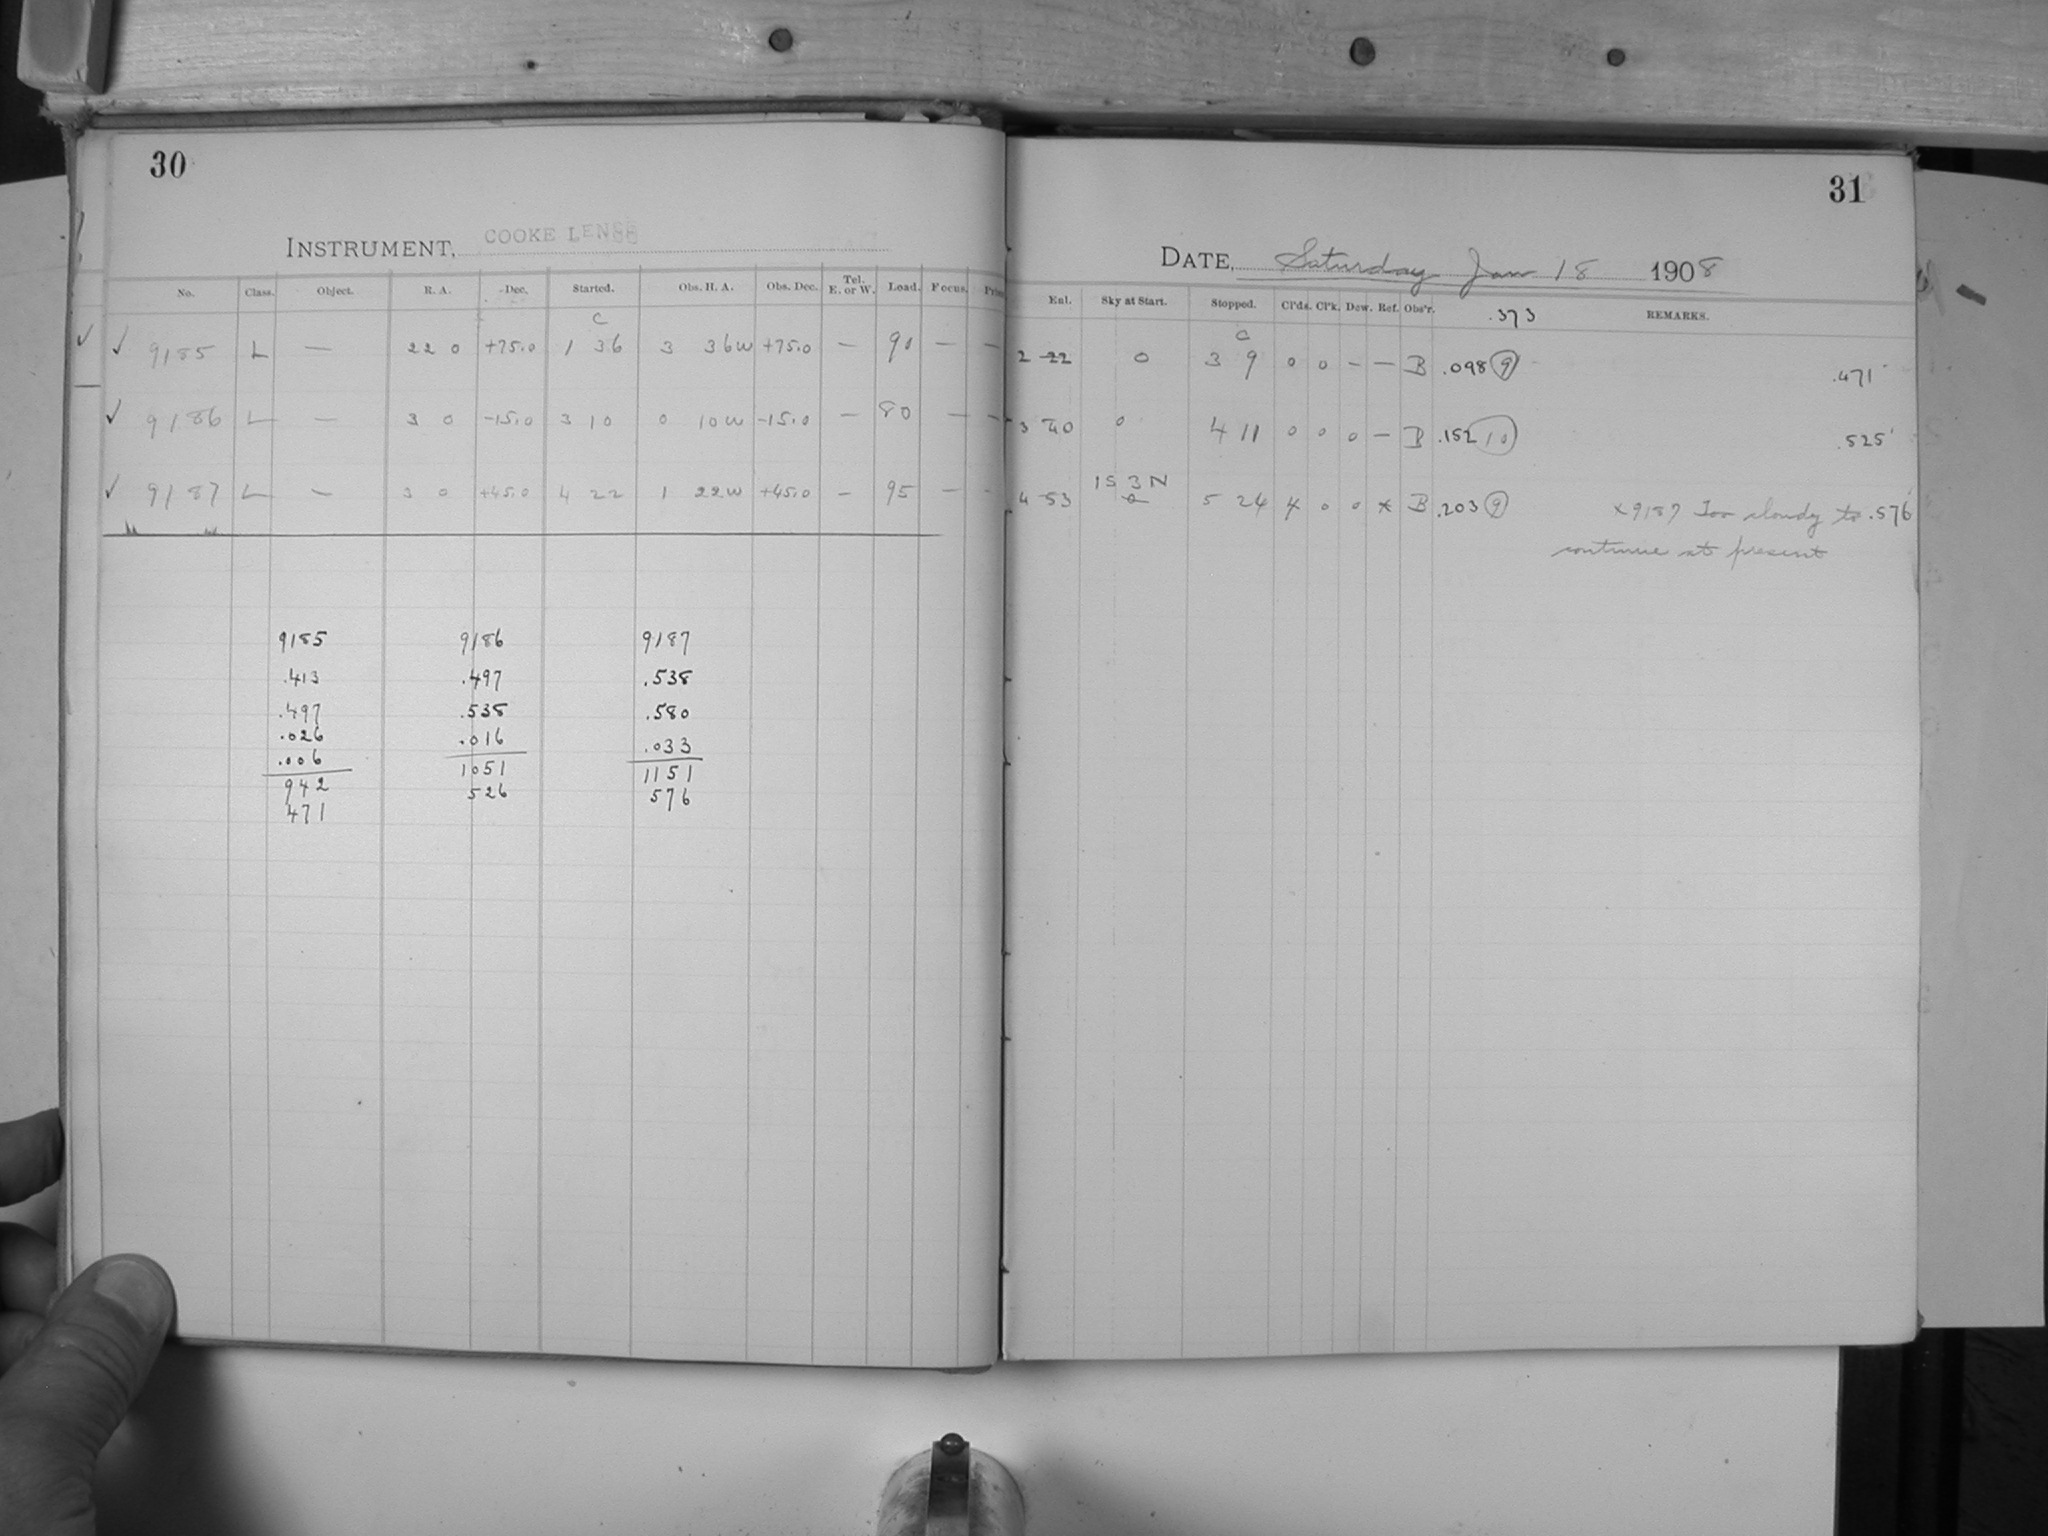 30
INSTRUMENT, COOKE LENS
No. Class. Object. R. A. Dec. Started. Obs. H. A. Obs. Dec. Tel. E. or W. Load. Focus.
C
✓ ✓ 9185 L — 22 0 +75.0 1 36 3 36W +75.0 — 90 — —
✓ 9186 L — 3 0 -15.0 3 10 0 10W -15.0 — 80 — —
✓ 9187 L — 3 0 +45.0 4 22 1 22W +45.0 — 95 — -
9185 9186 9187
.413 .497 .538
.497 .538 .580
.026 .016 .033
.006
942 1051 1151
471 526 576
31
DATE, Saturday Jan 18 1908
Enl. Sky at Start. Stopped. Cl'ds. Cl'k. Dew. Ref. Obs'r. .373 REMARKS.
C
2 22 0 3 9 0 0 - — B .098 9 .471
3 40 0 4 11 0 0 0 — B .152 10 .525
1S 3N
4 53 5 24 4 0 0 x B .203 9 x9187 Too cloudy to .576
continue at present